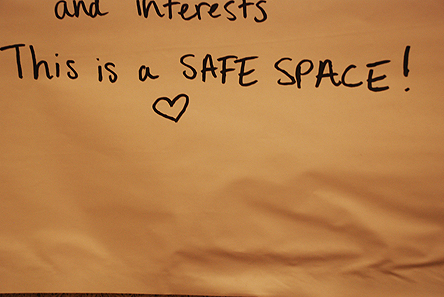 and interests
This is a SAFE SPACE!